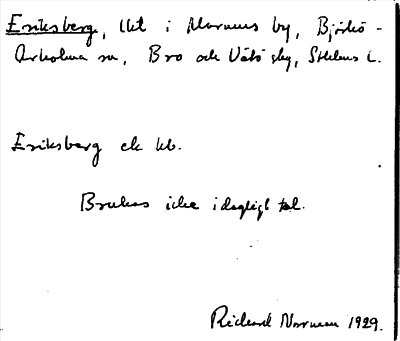 Eriksberg, lht i Marums by, Björkö-
Arholma sn, Bro och Vätö skg, Sthlms l.
Eriksberg ek kb.
Brukas icke i dagligt tal.
Rickard Norrman 1929.